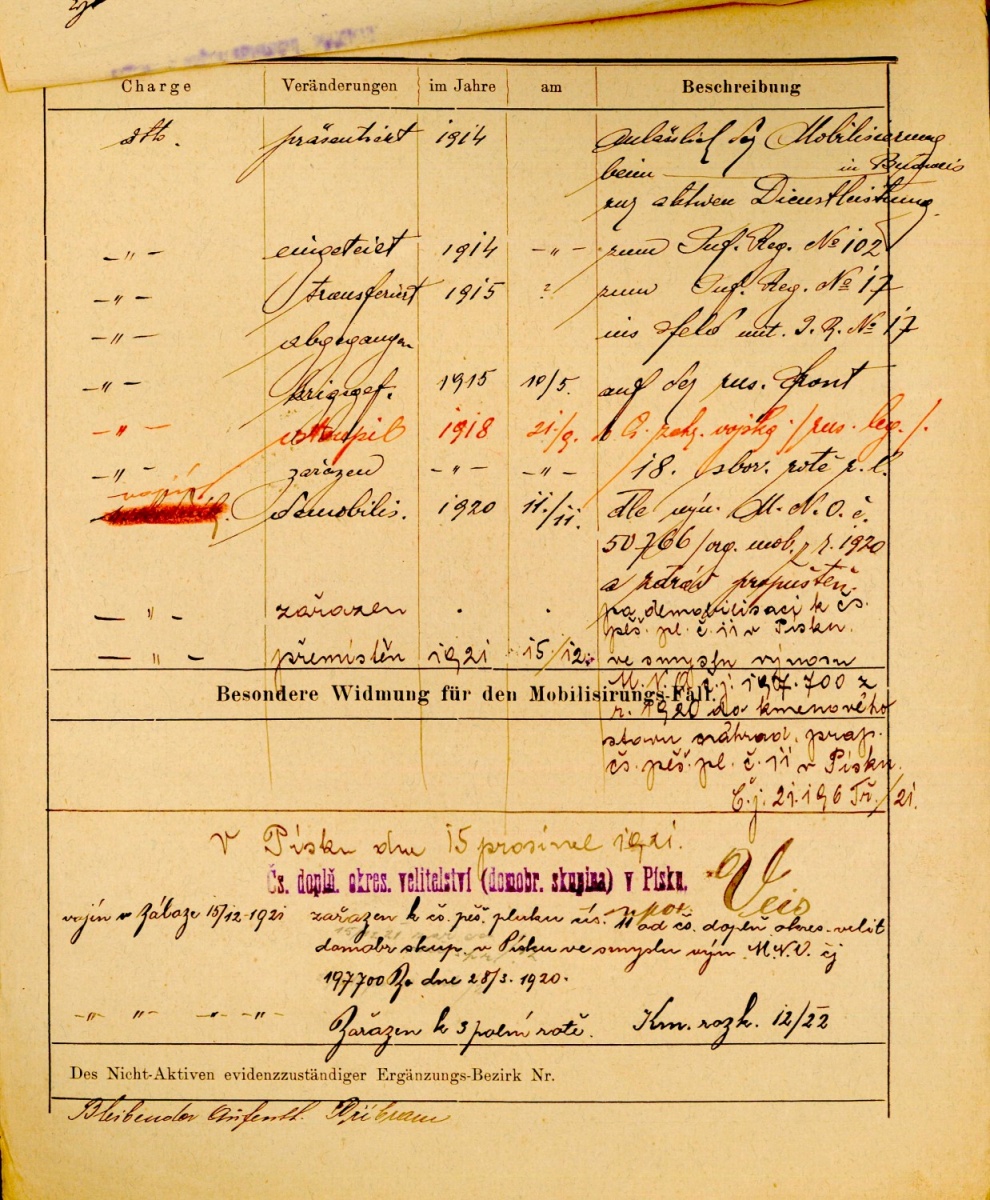 Charge Veränderungen im Jahre am Beschreibung
präsentiert 1914 anläßlich der Mobilisierung
beim — in Budweis
zur aktiven Dienstleistung.
–〃– eingeteilt 1914 –〃– zum Inf. Reg. № 102
–〃– transferiert 1915 ? zum Inf. Reg. № 17
–〃– abgegangen ins Feld mit I. R. № 17
–〃– kriegsgef. 1915 10/5. auf der rus. Front
–〃– vstoupil 1918 21/9. čs. zahr. vojska /rus. leg./.
–〃– zařazen –〃– –〃– 18. sbor. rotě r. l.
vojín
demobilis. 1920 11./11. dle výn. M. N. O. č.
50766/org. mob. z r. 1920
a propuštěn.
–〃– zařazen . . po demobilisaci k čs.
pěš. pl. č. 11 v Písku.
–〃– přemístěn 1921 15/12. ve smyslu výnosu
M. N. O. č. j. 197.700 z
Besondere Widmung für den Mobilisirungs-Fall.
r. 1920 do kmenového
stavu náhrad. prap.
čs. pěš. pl. č. 11 v Písku.
Č. j. 21.196 Tř./21.
V Písku dne 15 prosince 1921.
Čs. doplň. okres. velitelství (domobr. skupina) v Písku.
Veis
vojín v Záloze 15/12-1921 zařazen k čs. pěš. pluku čís. 11 od čs. doplň okres. velit
domobr skup. v Písku ve smyslu výn M.N.O. čj
197700 dne 28/3. 1920.
–〃– 〃– –〃– –〃– Zařazen k 3 polní rotě. Km. rozk. 12/22
Des Nicht-Aktiven evidenzzuständiger Ergänzungs-Bezirk Nr.
Bleibender Aufenth. Příbram